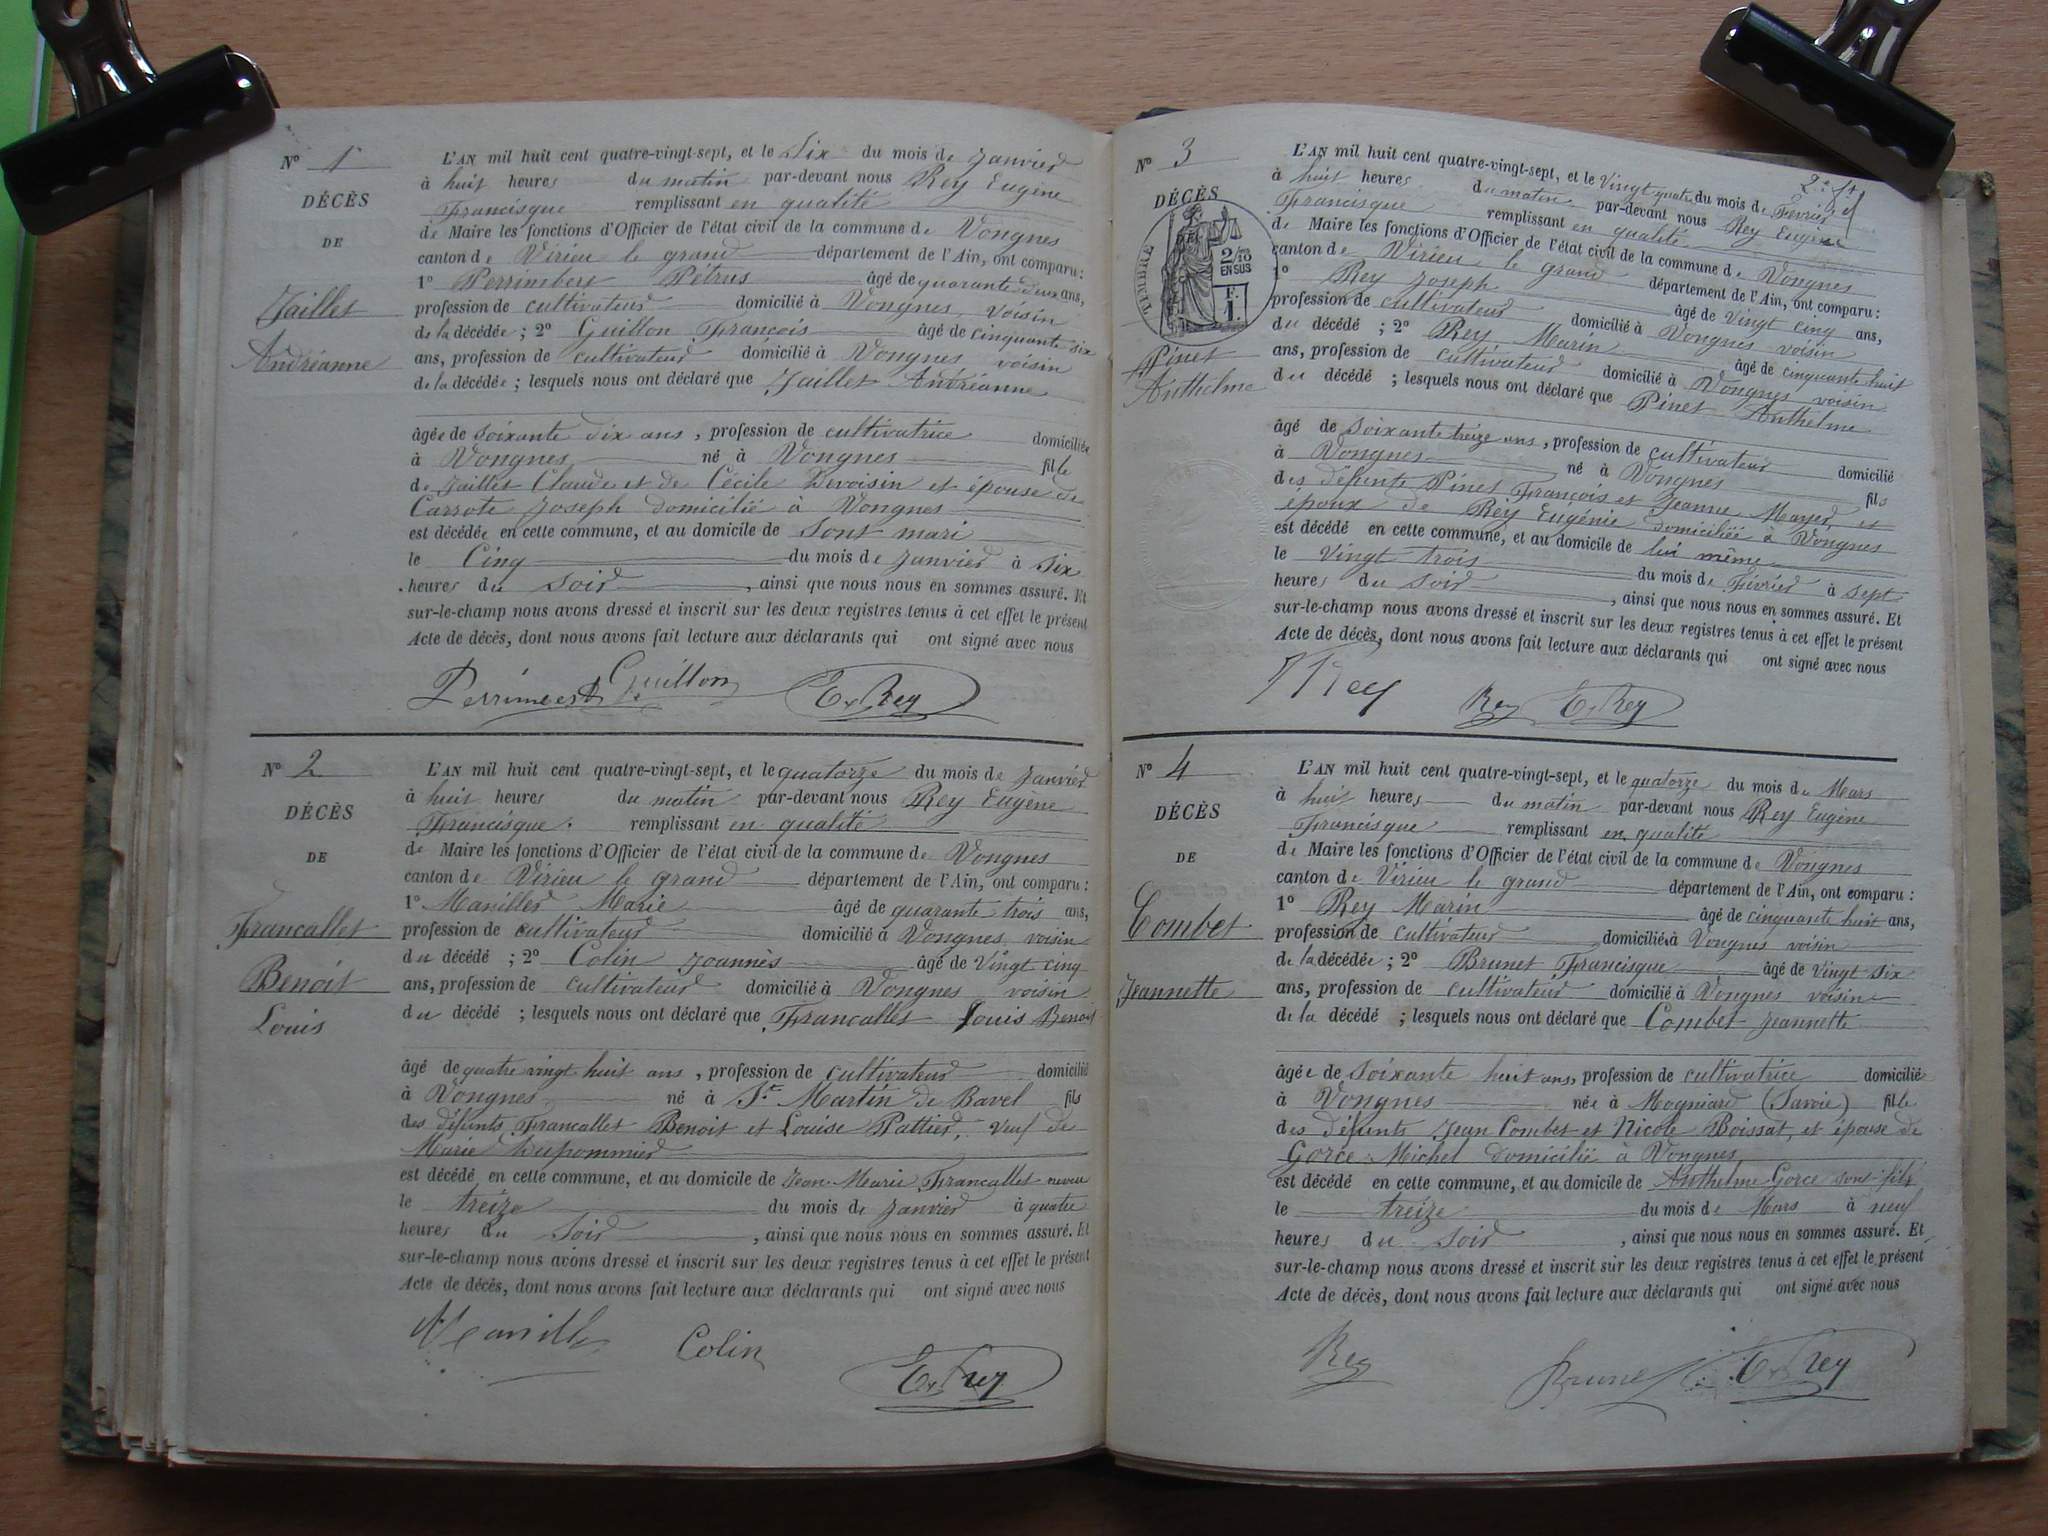 N° 1
DÉCÈS
DE
Jaillet
Andréanne
L'AN mil huit cent quatre-vingt-sept, et le Six du mois de Janvier
à huit heures du matin par-devant nous Rey Eugène
Francisque remplissant en qualité
de Maire les fonctions d'Officier de l'état civil de la commune de Vongnes
canton de Virieu le grand département de l'Ain, ont comparu :
1° Perrimbert Pétrus âgé de quarante deux ans,
profession de cultivateur domicilié à Vongnes, voisin
de la décédée ; 2° Guillon François âgé de cinquante six
ans, profession de cultivateur domicilié à Vongnes voisin
de la décédée ; lesquels nous ont déclaré que Jaillet Andréanne
âgée de soixante dix ans, profession de cultivatrice domiciliée
à Vongnes né à Vongnes fille
de Jaillet Claude et de Cécile Devoisin et épouse de
Carrote Joseph domicilié à Vongnes
est décédée en cette commune, et au domicile de sont mari
le Cinq du mois de Janvier à six
heures du soir, ainsi que nous nous en sommes assuré. Et
sur-le-champ nous avons dressé et inscrit sur les deux registres tenus à cet effet le présent
Acte de décès, dont nous avons fait lecture aux déclarants qui ont signé avec nous
Perrimbert Guillon E. Rey
N° 2
DÉCÈS
DE
Francallet
Benoit
Louis
L'AN mil huit cent quatre-vingt-sept, et le quatorze du mois de Janvier
à huit heures du matin par-devant nous Rey Eugène
Francisque. remplissant en qualité
de Maire les fonctions d'Officier de l'état civil de la commune de Vongnes
canton de Virieu le grand département de l'Ain, ont comparu :
1° Maniller Marie âgé de quarante trois ans,
profession de cultivateur domicilié à Vongnes voisin
du décédé ; 2° Colin Joannès âgé de Vingt cinq
ans, profession de cultivateur domicilié à Vongnes voisin
du décédé ; lesquels nous ont déclaré que Francallet Louis Benoit
âgé de quatre vingt huit ans, profession de cultivateur domicilié
à Vongnes né à St Martin de Bavel fils
des défunts Francallet Benoit et Louise Pattier, veuf de
Marie Dupommier
est décédé en cette commune, et au domicile de Jean Marie Francallet neveu
le treize du mois de Janvier à quatre
heures du soir, ainsi que nous nous en sommes assuré. Et
sur-le-champ nous avons dressé et inscrit sur les deux registres tenus à cet effet le présent
Acte de décès, dont nous avons fait lecture aux déclarants qui ont signé avec nous
Colin E. Rey
N° 3
DÉCÈS
TIMBRE
2/10
EN SUS
F.
1.
Pinet
Anthelme
L'AN mil huit cent quatre-vingt-sept, et le Vingt quatre du mois de Février
à huit heures du matin par-devant nous Rey Eugène
Francisque remplissant en qualité
de Maire les fonctions d'Officier de l'état civil de la commune de Vongnes
canton de Virieu le grand département de l'Ain, ont comparu :
1° Rey Joseph âgé de Vingt cinq ans,
profession de cultivateur domicilié à Vongnes voisin
du décédé ; 2° Rey Marin âgé de cinquante huit
ans, profession de cultivateur domicilié à Vongnes voisin
du décédé ; lesquels nous ont déclaré que Pinet Anthelme
âgé de soixante treize ans, profession de cultivateur domicilié
à Vongnes né à Vongnes fils
des défunts Pinet François et Jeanne Mayer, et
époux de Rey Eugénie domiciliée à Vongnes
est décédé en cette commune, et au domicile de lui même
le vingt trois du mois de Février à sept
heures du soir, ainsi que nous nous en sommes assuré. Et
sur-le-champ nous avons dressé et inscrit sur les deux registres tenus à cet effet le présent
Acte de décès, dont nous avons fait lecture aux déclarants qui ont signé avec nous
Rey Rey E. Rey
N° 4
DÉCÈS
DE
Combet
Jeannette
L'AN mil huit cent quatre-vingt-sept, et le quatorze du mois de Mars
à huit heures du matin par-devant nous Rey Eugène
Francisque remplissant en qualité
de Maire les fonctions d'Officier de l'état civil de la commune de Vongnes
canton de Virieu le grand département de l'Ain, ont comparu :
1° Rey Marin âgé de cinquante huit ans,
profession de cultivateur domicilié à Vongnes voisin
de la décédée ; 2° Brunet Francisque âgé de vingt six
ans, profession de cultivateur domicilié à Vongnes voisin
de la décédé ; lesquels nous ont déclaré que Combet Jeannette
âgée de soixante huit ans, profession de cultivatrice domicilié
à Vongnes née à Mogniard (Savoie) fille
des défunts Jean Combet et Nicole Boissat, et épouse de
Gorce Michel domicilié à Vongnes
est décédé en cette commune, et au domicile de Anthelme Gorce sont fils
le treize du mois de Mars à neuf
heures du soir, ainsi que nous nous en sommes assuré. Et
sur-le-champ nous avons dressé et inscrit sur les deux registres tenus à cet effet le présent
Acte de décès, dont nous avons fait lecture aux déclarants qui ont signé avec nous
Rey Brunet E. Rey